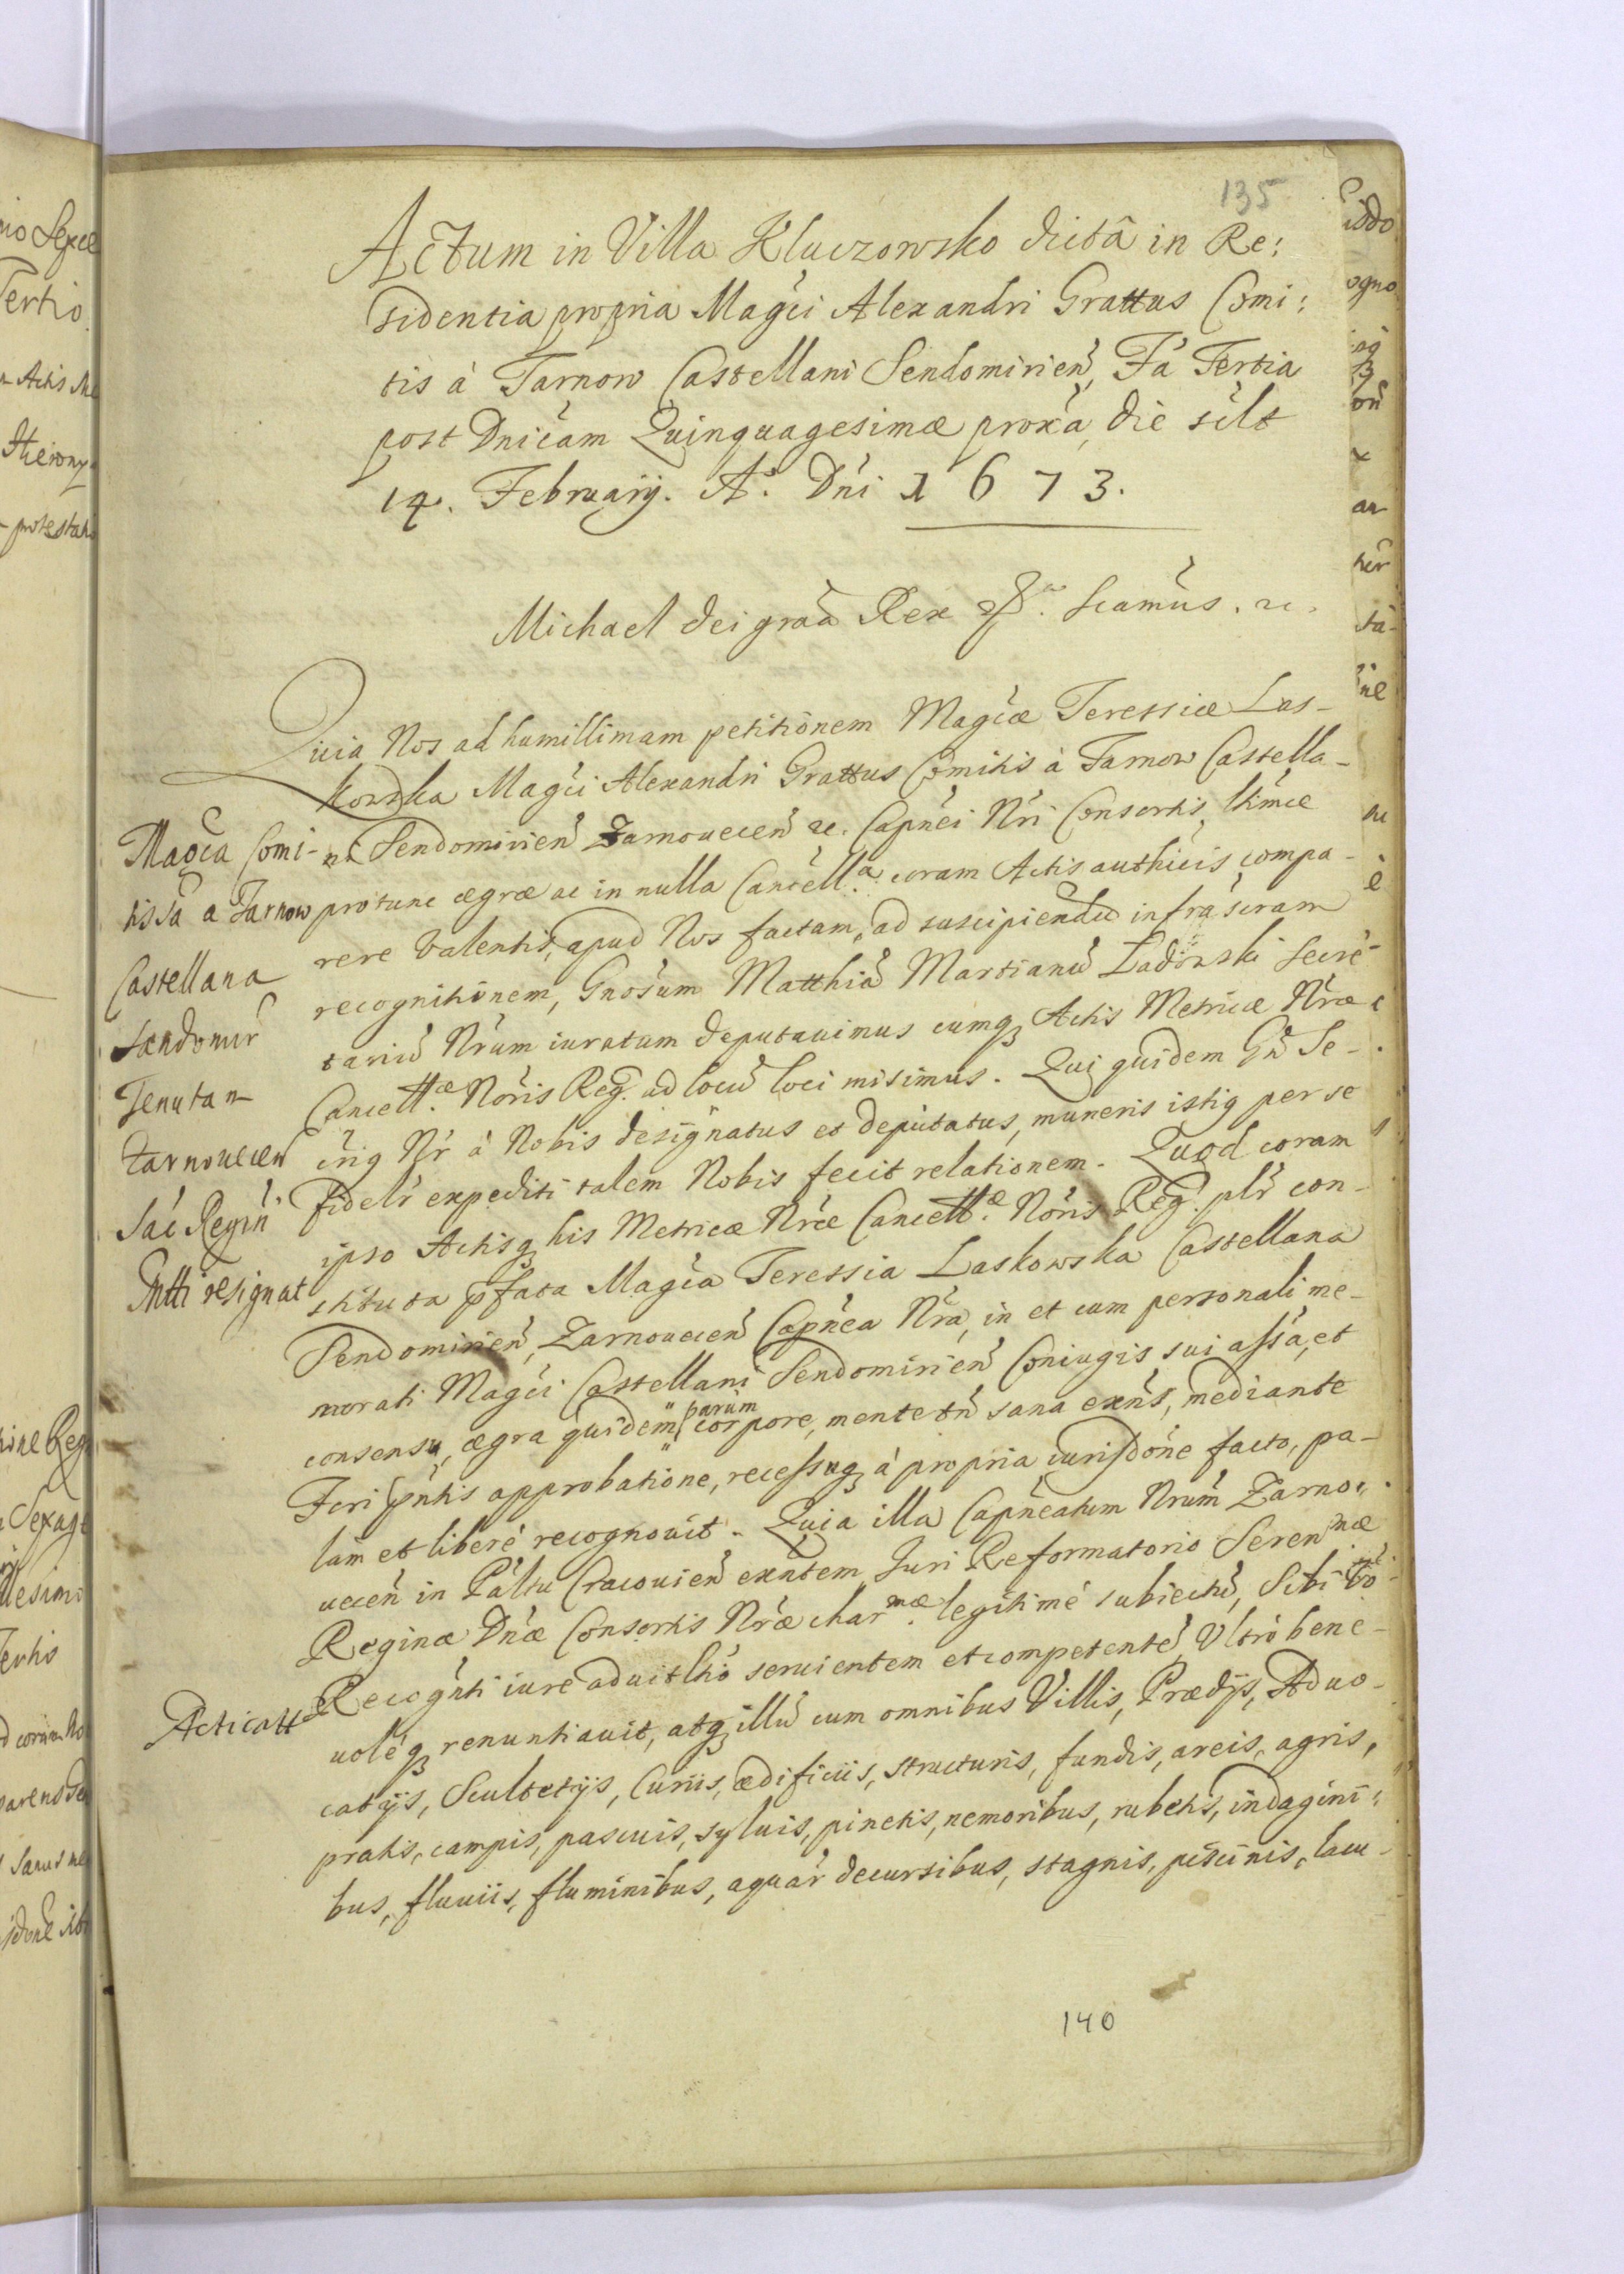 135
Actum in Villa Kluczowsko dictâ in Re:
sidentia propria Magci Alexandri Grattus Comi:
tis à Tarnow Castellani Sendomirien, Fa Tertia
post Dnicam Quinquagesimæ proxa, die silt
14. February. Ao. Dni 1673.
Michael Dei graa Rex Scamus.
Quia Nos ad humillimam petitionem Magcæ Teressiæ Las-
kowska Magci Alexandri Grattus Comitis à Tarnow Castella-
ni Sendomirien Zarnouecen Capnei Nri Consortis, ltimæ
protunc ægræ ac in nulla Cancella coram Actis authicis compa-
rere valentis, apud Nos factam, ad suscipiendu infrascram
recognitionem, Gnosum Matthiu Martianu Ladinski Secre-
tariu Nrum iuratum deputauimus cumq Actis Metricæ Nræ
Cancellæ Noris Reg. ad locu loci misimus. Qui quidem Gn Se-
crius Nr à Nobis designatus et deputatus, muneris istiq per se
fidelr expediti talem Nobis fecit relationem. Quod coram
ipso Actisq his Metricæ Nræ Cancellæ Noris Reg. plr con-
stituta pfata Magca Teressia Laskowska Castellana
Sendomirien, Zarnouecen Capnea Nra, in et cum personali me-
morati Magci Castellani Sendomirien Coniugis sui assa, et
consensu, ægra quidem parum corpore, mente tn sana exns, mediante
Fori pntis approbatione, recessuq à propria iurisdone facto, pa-
lam et liberè recognouit. Quia illa Capneatum Nrum Zarno-
uecen in Paltu Cracouien exntem, Juri Reformatorio Serenmæ
Reginæ Dnæ Consortis Nræ charmæ legitimè subiectu, Sibi
Recognti iure aduitlio seruientem et competente, Ultrò bene-
uoleq renuntiauit, atq illu cum omnibus Villis, Prædijs, Aduo-
catijs, Scultetijs, Curijs, ædificiis, structuris, fundis, areis, agris,
pratis, campis, pascuis, syluis, pinetis, nemoribus, rubetis, indagini-
bus, fluuiis, fluminibus, aquar decursibus, stagnis, piscinis, lacu-
Magca Comi-
tissa a Tarnow
Castellana
Sandomir
Tenutan
Zarnouecen
Sac Regin
resignat
Acticatt
140